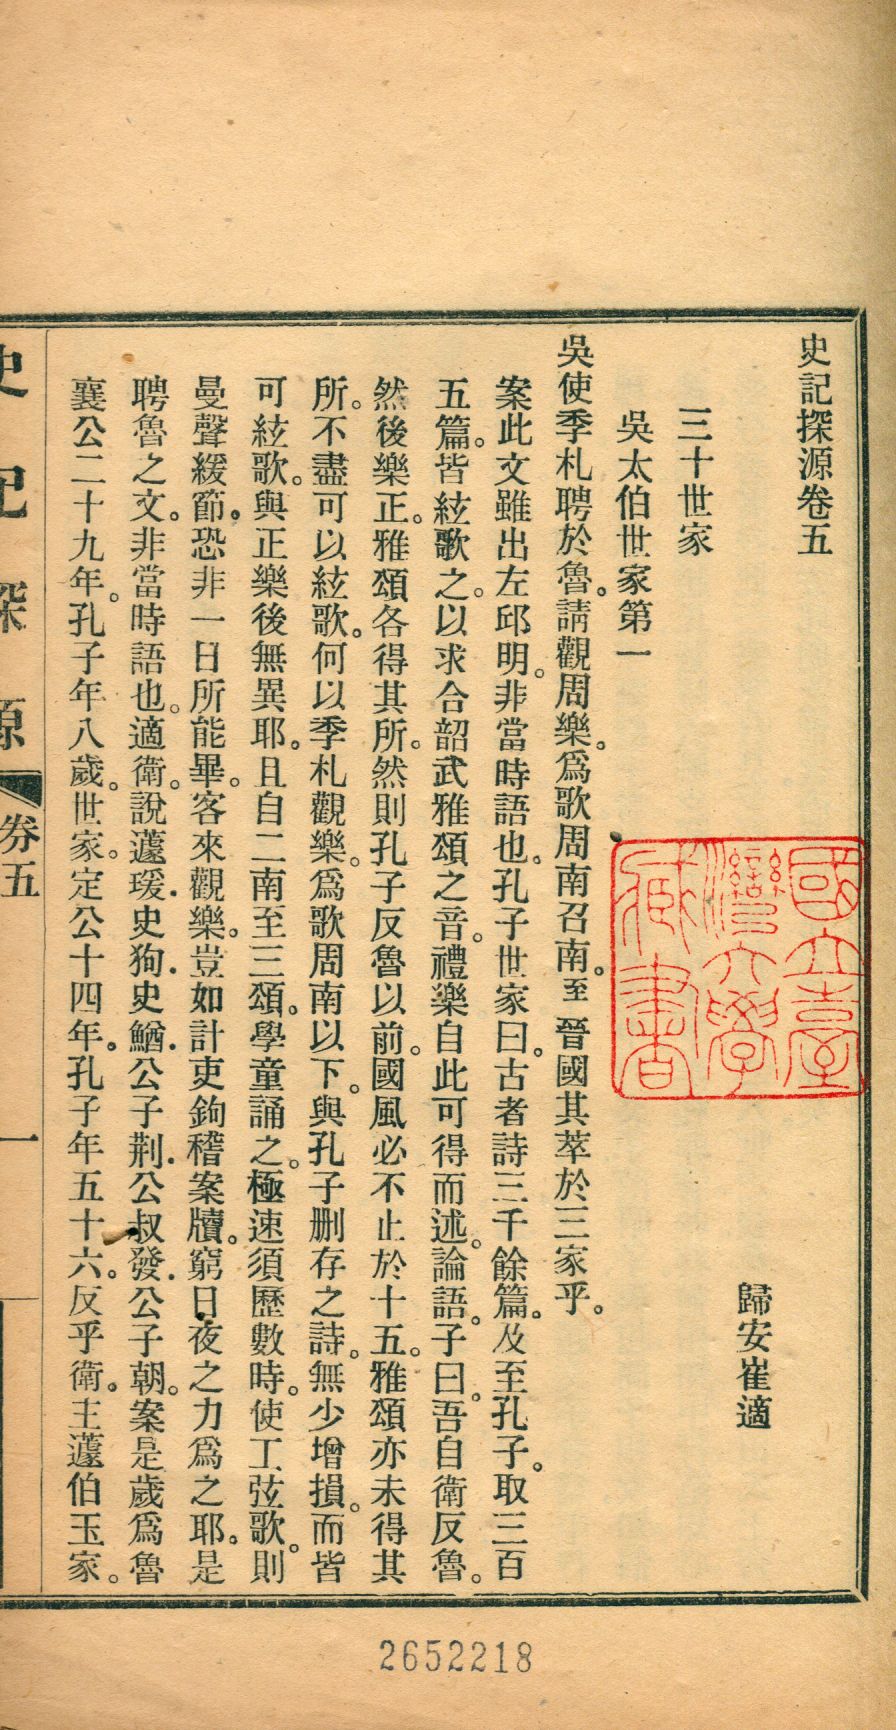 史記探源卷五
歸安崔適
三十世家
吳太伯世家第一
吳使季札聘於魯。請觀周樂。爲歌周南召南。至晉國其萃於三家乎。
案此文雖出左邱明。非當時語也。孔子世家曰。古者詩三千餘篇。及至孔子。取三百
五篇。皆絃歌之。以求合韶武雅頌之音。禮樂自此可得而述。論語。子曰。吾自衛反魯。
然後樂正。雅頌各得其所。然則孔子反魯以前。國風必不止於十五。雅頌亦未得其
所。不盡可以絃歌。何以季札觀樂。爲歌周南以下。與孔子刪存之詩。無少增損。而皆
可絃歌。與正樂後無異耶。且自二南至三頌。學童誦之。極速須歷數時。使工弦歌。則
曼聲緩節。恐非一日所能畢。客來觀樂。豈如計吏鉤稽案牘。窮日夜之力爲之耶。是
聘魯之文。非當時語也。適衛。說蘧瑗．史狗．史鰌．公子荆．公叔發．公子朝。案是歲爲魯
襄公二十九年。孔子年八歲。世家。定公十四年。孔子年五十六。反乎衛。主蘧伯玉家。
史記探源
卷五
一
國立臺灣大學藏書
2652218